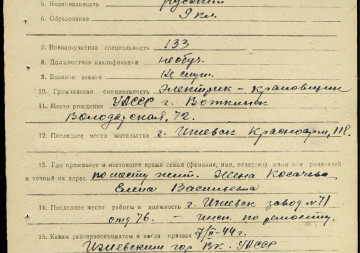 5. Национальность русский
6. Образование 9 кл.
7. Военно-учетная специальность 133
8. Должностная квалификация необуч.
9. Воинское звание
10. Гражданская специальность Электрик-крановщик
11. Место рождения УАССР г. Воткинск
Володарская, 72.
12. Последнее место жительства г. Ижевск Красноарм, 118.
13. Где проживает в настоящее время семья (фамилия, имя, отчество) жены или родителей
и точный их адрес по месту жит. Жена Косачева
Елена Васильевна
14. Последнее место работы и должность г. Ижевск завод № 71
отд 76. - инж. по ремонту.
15. Каким райгорвоенкоматом и когда призван 7/II-44г.
Ижевским гор. Вк. УАССР